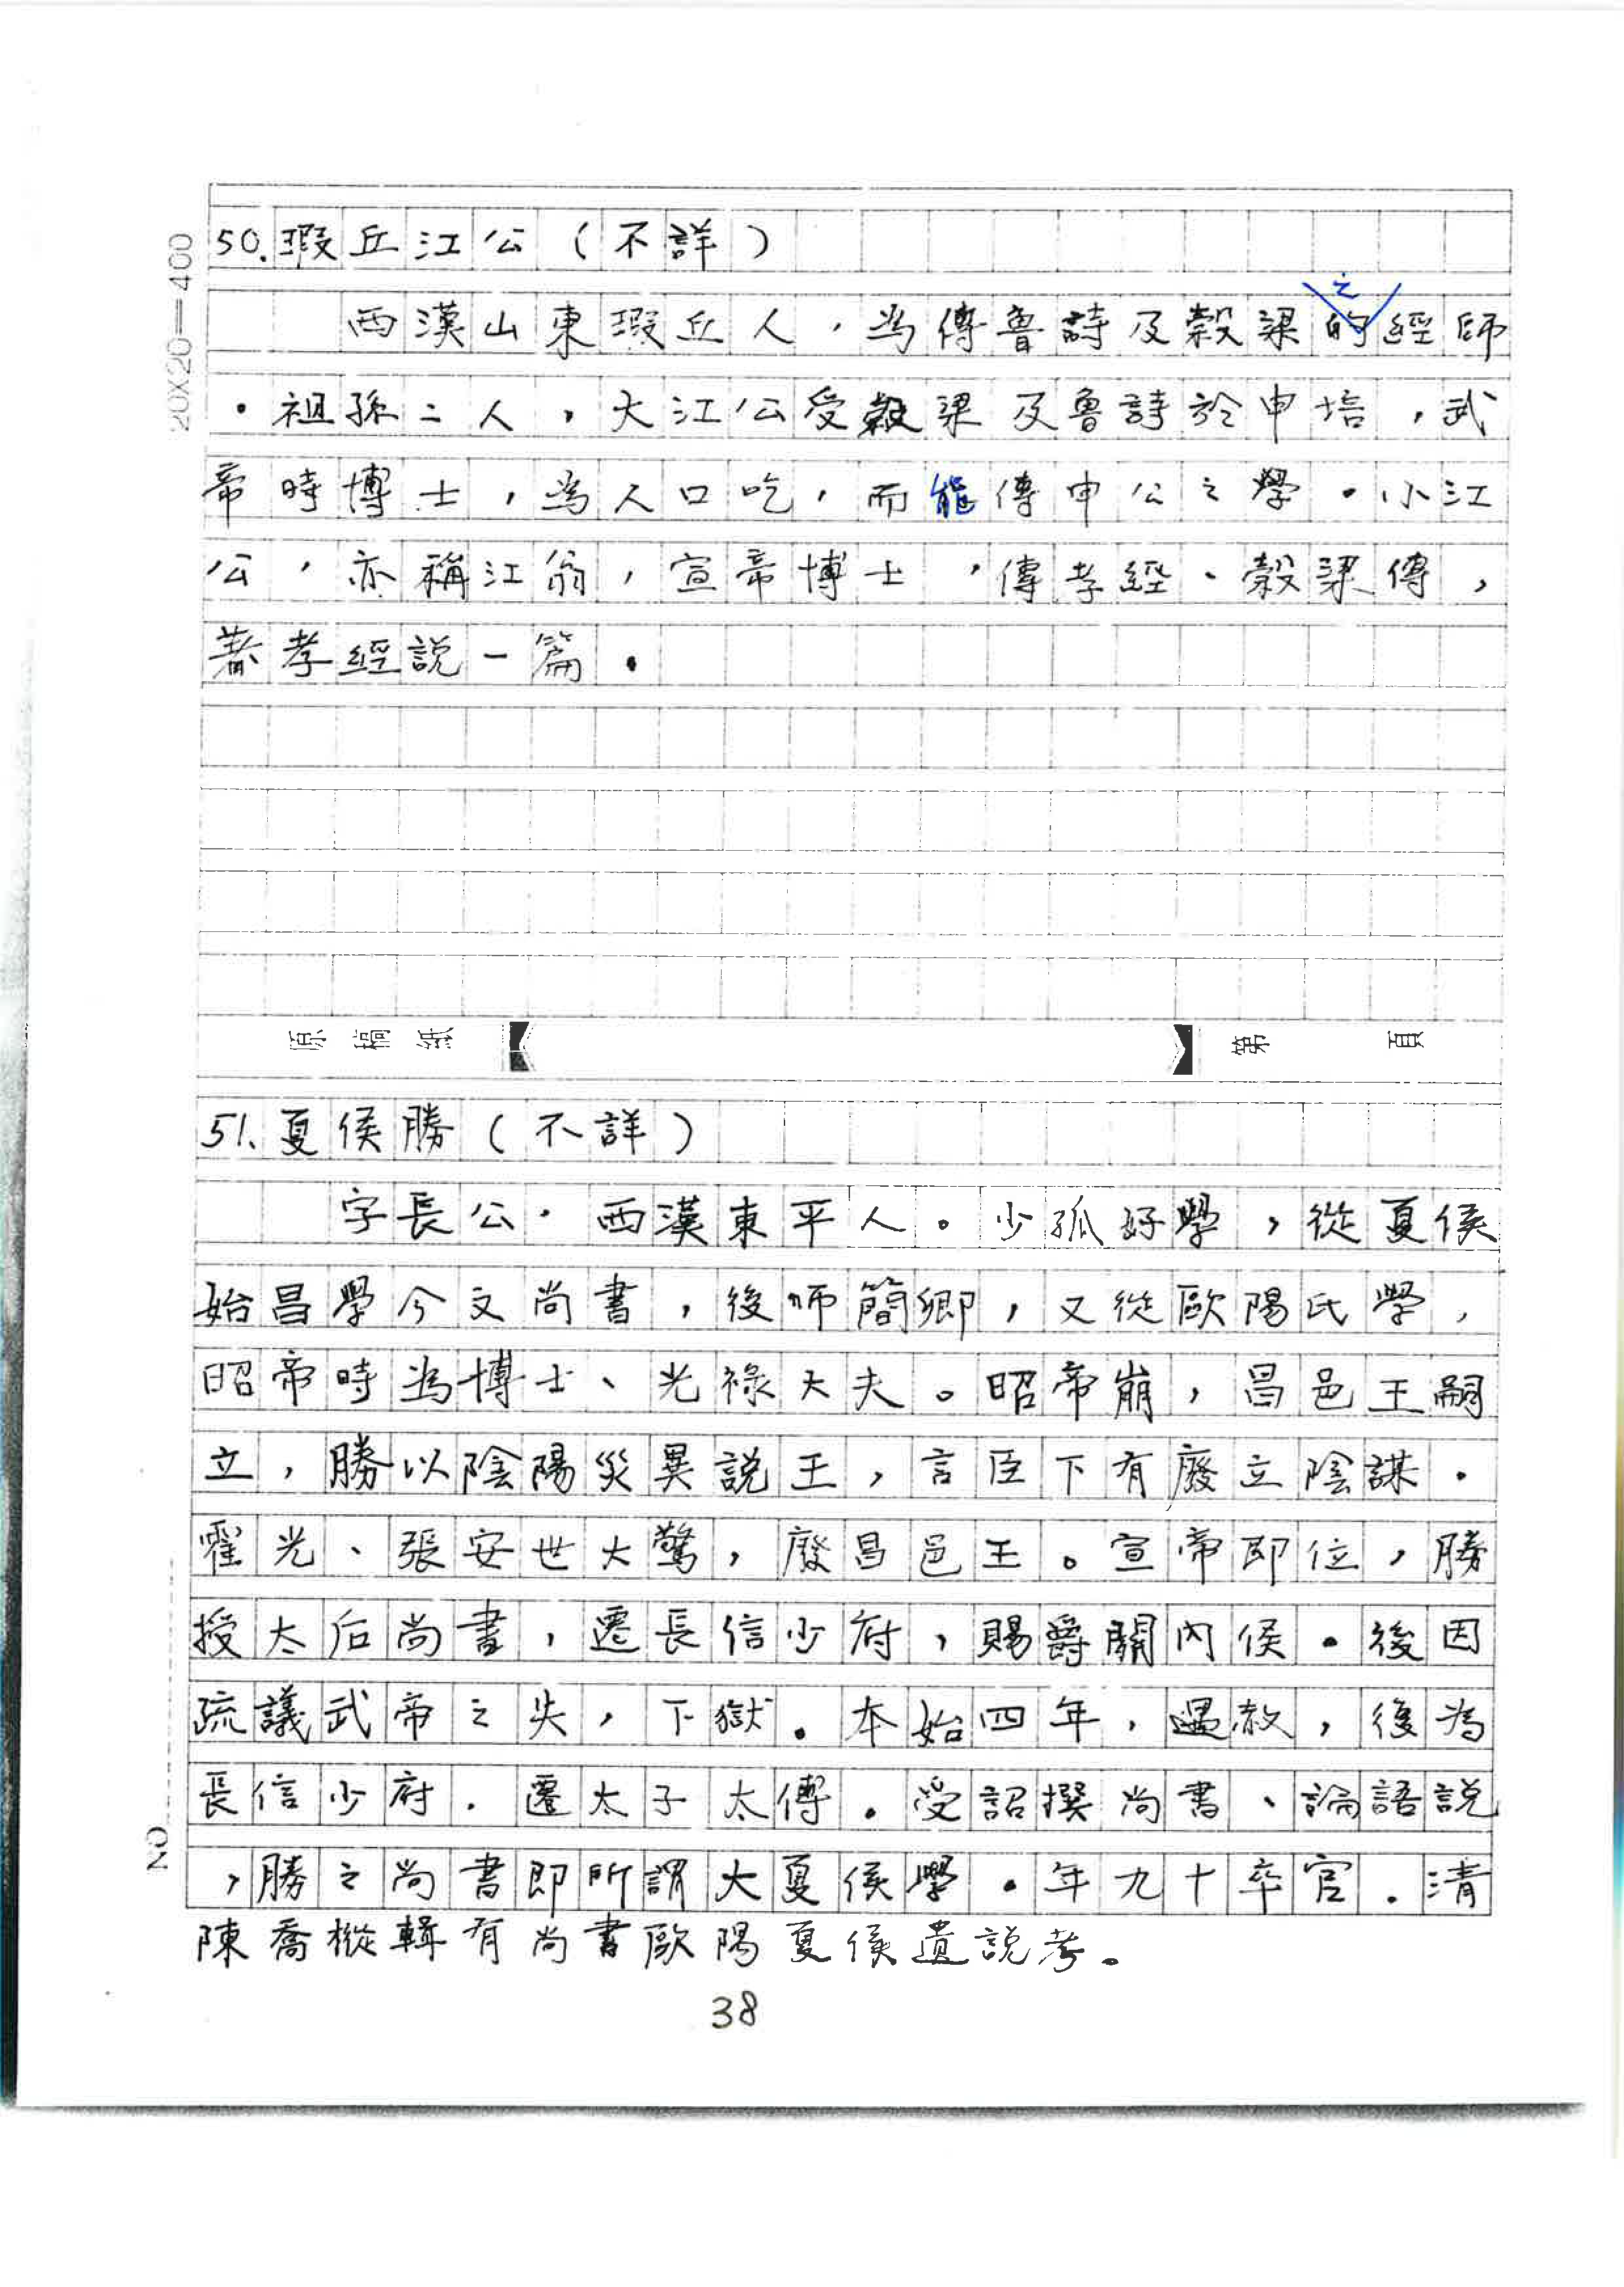 20X20=400
50.瑕丘江公(不詳)
之
西漢山東瑕丘人,為傳魯詩及穀梁的經師
。祖孫二人,大江公受穀梁及魯詩於申培,武
帝時博士,為人口吃,而能傳申公之學。小江
公,亦稱江翁,宣帝博士,傳孝經、穀梁傳,
著孝經說一篇。
原稿紙 第 頁
51.夏侯勝(不詳)
字長公.西漢東平人。少孤好學,從夏侯
始昌學今文尚書,後師簡卿,又從歐陽氏學,
昭帝時為博士、光祿大夫。昭帝崩,昌邑王嗣
立,勝以陰陽災異說王,言臣下有廢立陰謀.
霍光、張安世大驚,廢昌邑王。宣帝即位,勝
授太后尚書,遷長信少府,賜爵關內侯。後因
疏議武帝之失,下獄。本始四年,遇赦,後為
長信少府.遷太子太傅。受詔撰尚書、論語說
,勝之尚書即所謂大夏侯學。年九十卒官.清
陳喬樅輯有尚書歐陽夏侯遺說考。
NO
38